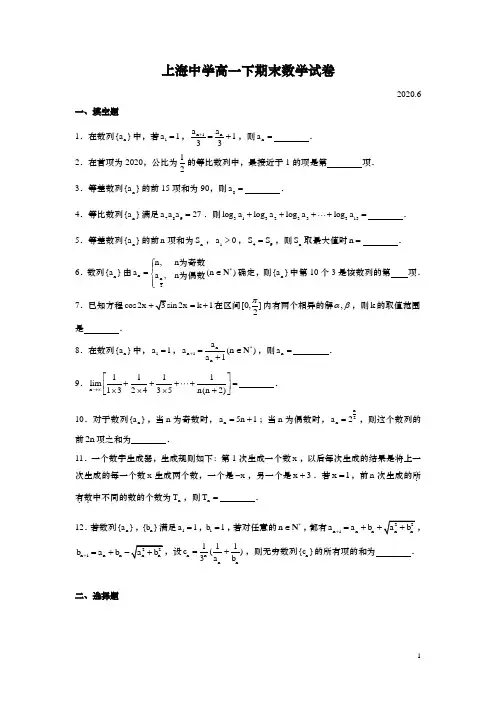 上海中学高一下期末数学试卷
2020.6
一、填空题
1．在数列{a_n}中，若a_1 = 1，a_{n+1}/3 = a_n/3 + 1，则a_n = ______．
2．在首项为 2020，公比为 1/2 的等比数列中，最接近于 1 的项是第______项．
3．等差数列{a_n}的前 15 项和为 90，则a_8 = ______．
4．等比数列{a_n}满足a_7a_8a_9 = 27．则log_3 a_1 + log_3 a_2 + log_3 a_3 + ⋯ + log_3 a_15 = ______．
5．等差数列{a_n}的前 n 项和为S_n，a_1 > 0，S_4 = S_9，则S_n取最大值时n = ______．
6．数列{a_n}由a_n = { n, n为奇数; a_{n/2}, n为偶数 (n ∈ N*)确定，则{a_n}中第 10 个 3 是该数列的第 项．
7．已知方程cos2x + √3sin2x = k + 1在区间[0, π/2]内有两个相异的解α, β，则k的取值范围
是______．
8．在数列{a_n}中，a_1 = 1，a_{n+1} = a_n/(a_n + 1)(n ∈ N*)，则a_n = ______．
9．lim_{n→∞}[1/(1×3) + 1/(2×4) + 1/(3×5) + ⋯ + 1/(n(n+2))] = ______．
10．对于数列{a_n}，当 n 为奇数时，a_n = 5n + 1；当 n 为偶数时，a_n = 2^{n/2}，则这个数列的
前2n项之和为______．
11．一个数字生成器，生成规则如下：第 1 次生成一个数 x，以后每次生成的结果是将上一
次生成的每一个数 x 生成两个数，一个是−x，另一个是x + 3．若x = 1，前 n 次生成的所
有数中不同的数的个数为T_n，则T_n = ______．
12．若数列{a_n}，{b_n}满足a_1 = 1，b_1 = 1，若对任意的n ∈ N*，都有a_{n+1} = a_n + b_n + √(a_n² + b_n²)，
b_{n+1} = a_n + b_n − √(a_n² + b_n²)，设c_n = 1/3^n(1/a_n + 1/b_n)，则无穷数列{c_n}的所有项的和为______．
二、选择题
1